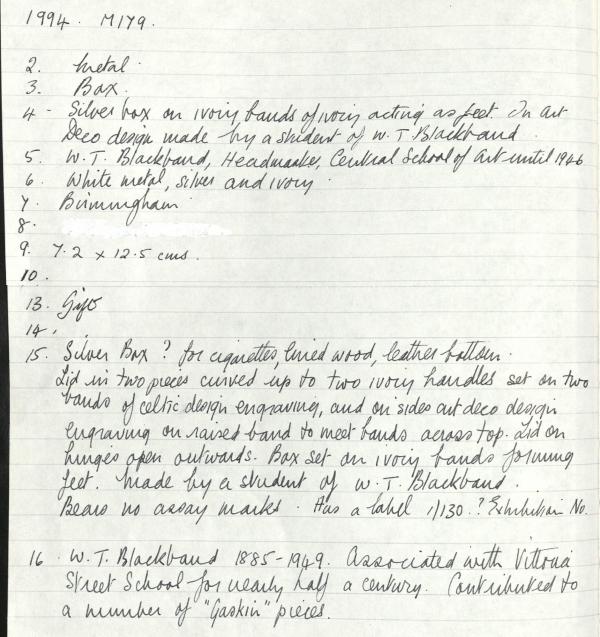 1994. M179.
2. Metal.
3. Box.
4 - Silver box on ivory bands of ivory acting as feet. In Art
Deco design made by a student of W. T. Blackband.
5. W. T. Blackband, Headmaster, Central School of Art until 1946
6. White metal, silver and ivory.
7. Birmingham.
8.
9. 7.2 x 12.5 cms.
10.
13. Gift
14.
15. Silver Box ? for cigarettes, lined wood, leather bottom.
Lid in two pieces curved up to two ivory handles set on two
bands of celtic design engraving, and on sides art deco design
engraving on raised band to meet bands across top. Lid on
hinges open outwards. Box set on ivory bands forming
feet. Made by a student of W. T. Blackband.
Bears no assay marks. Has a label 1/130. ? Exhibition No.
16. W. T. Blackband 1885-1949. Associated with Vittoria
Street School for nearly half a century. Contributed to
a number of "Gaskin" pieces.